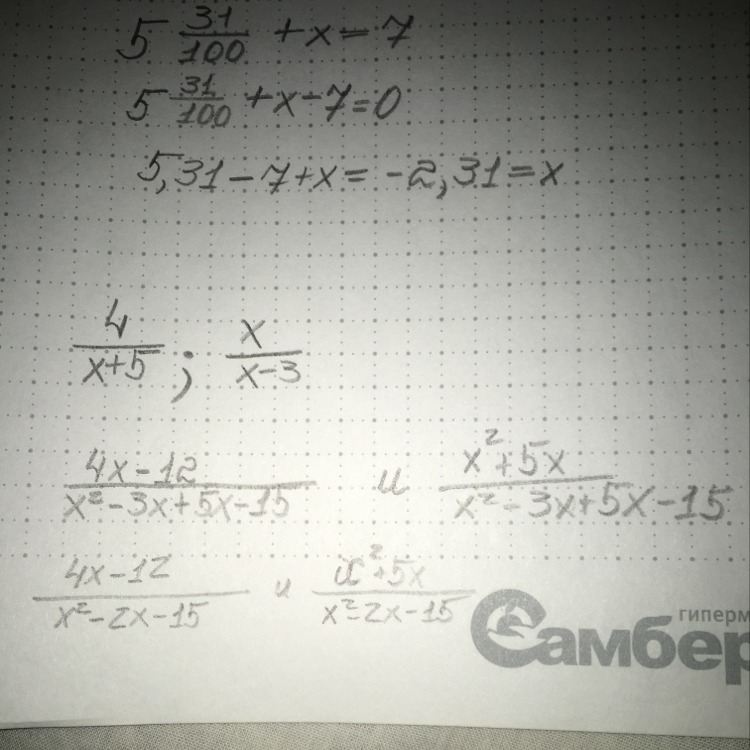 5 31/100 + x = 7
5 31/100 + x - 7 = 0
5,31 - 7 + x = -2,31 = x
4/(x+5) ; x/(x-3)
(4x-12)/(x²-3x+5x-15) и (x²+5x)/(x²-3x+5x-15)
(4x-12)/(x²-2x-15) и (x²+5x)/(x²-2x-15)
гиперм
Самбер